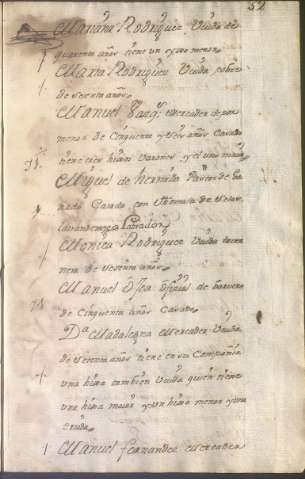 52
Mariana Rodriguez Viuda de
quarenta años tiene un hijo menor
Maria Rodriguez Viuda pobre
de setenta años
Manuel Mercader de por
menor de Cinquenta y Seis años Casado
tiene tres hijos Varones y el uno
Miguel de
nado Casado con
Labrador
Monica Rodriguez Viuda
de Setenta años
Manuel oficial de barvero
de Cinquenta años Casado
Dª Madalena Mercader Viuda
de Setenta años tiene en su Compañia
una hija tambien Viuda quien tiene
una hija maior y un hijo menor y una
Criada
Manuel fernandez Mercader